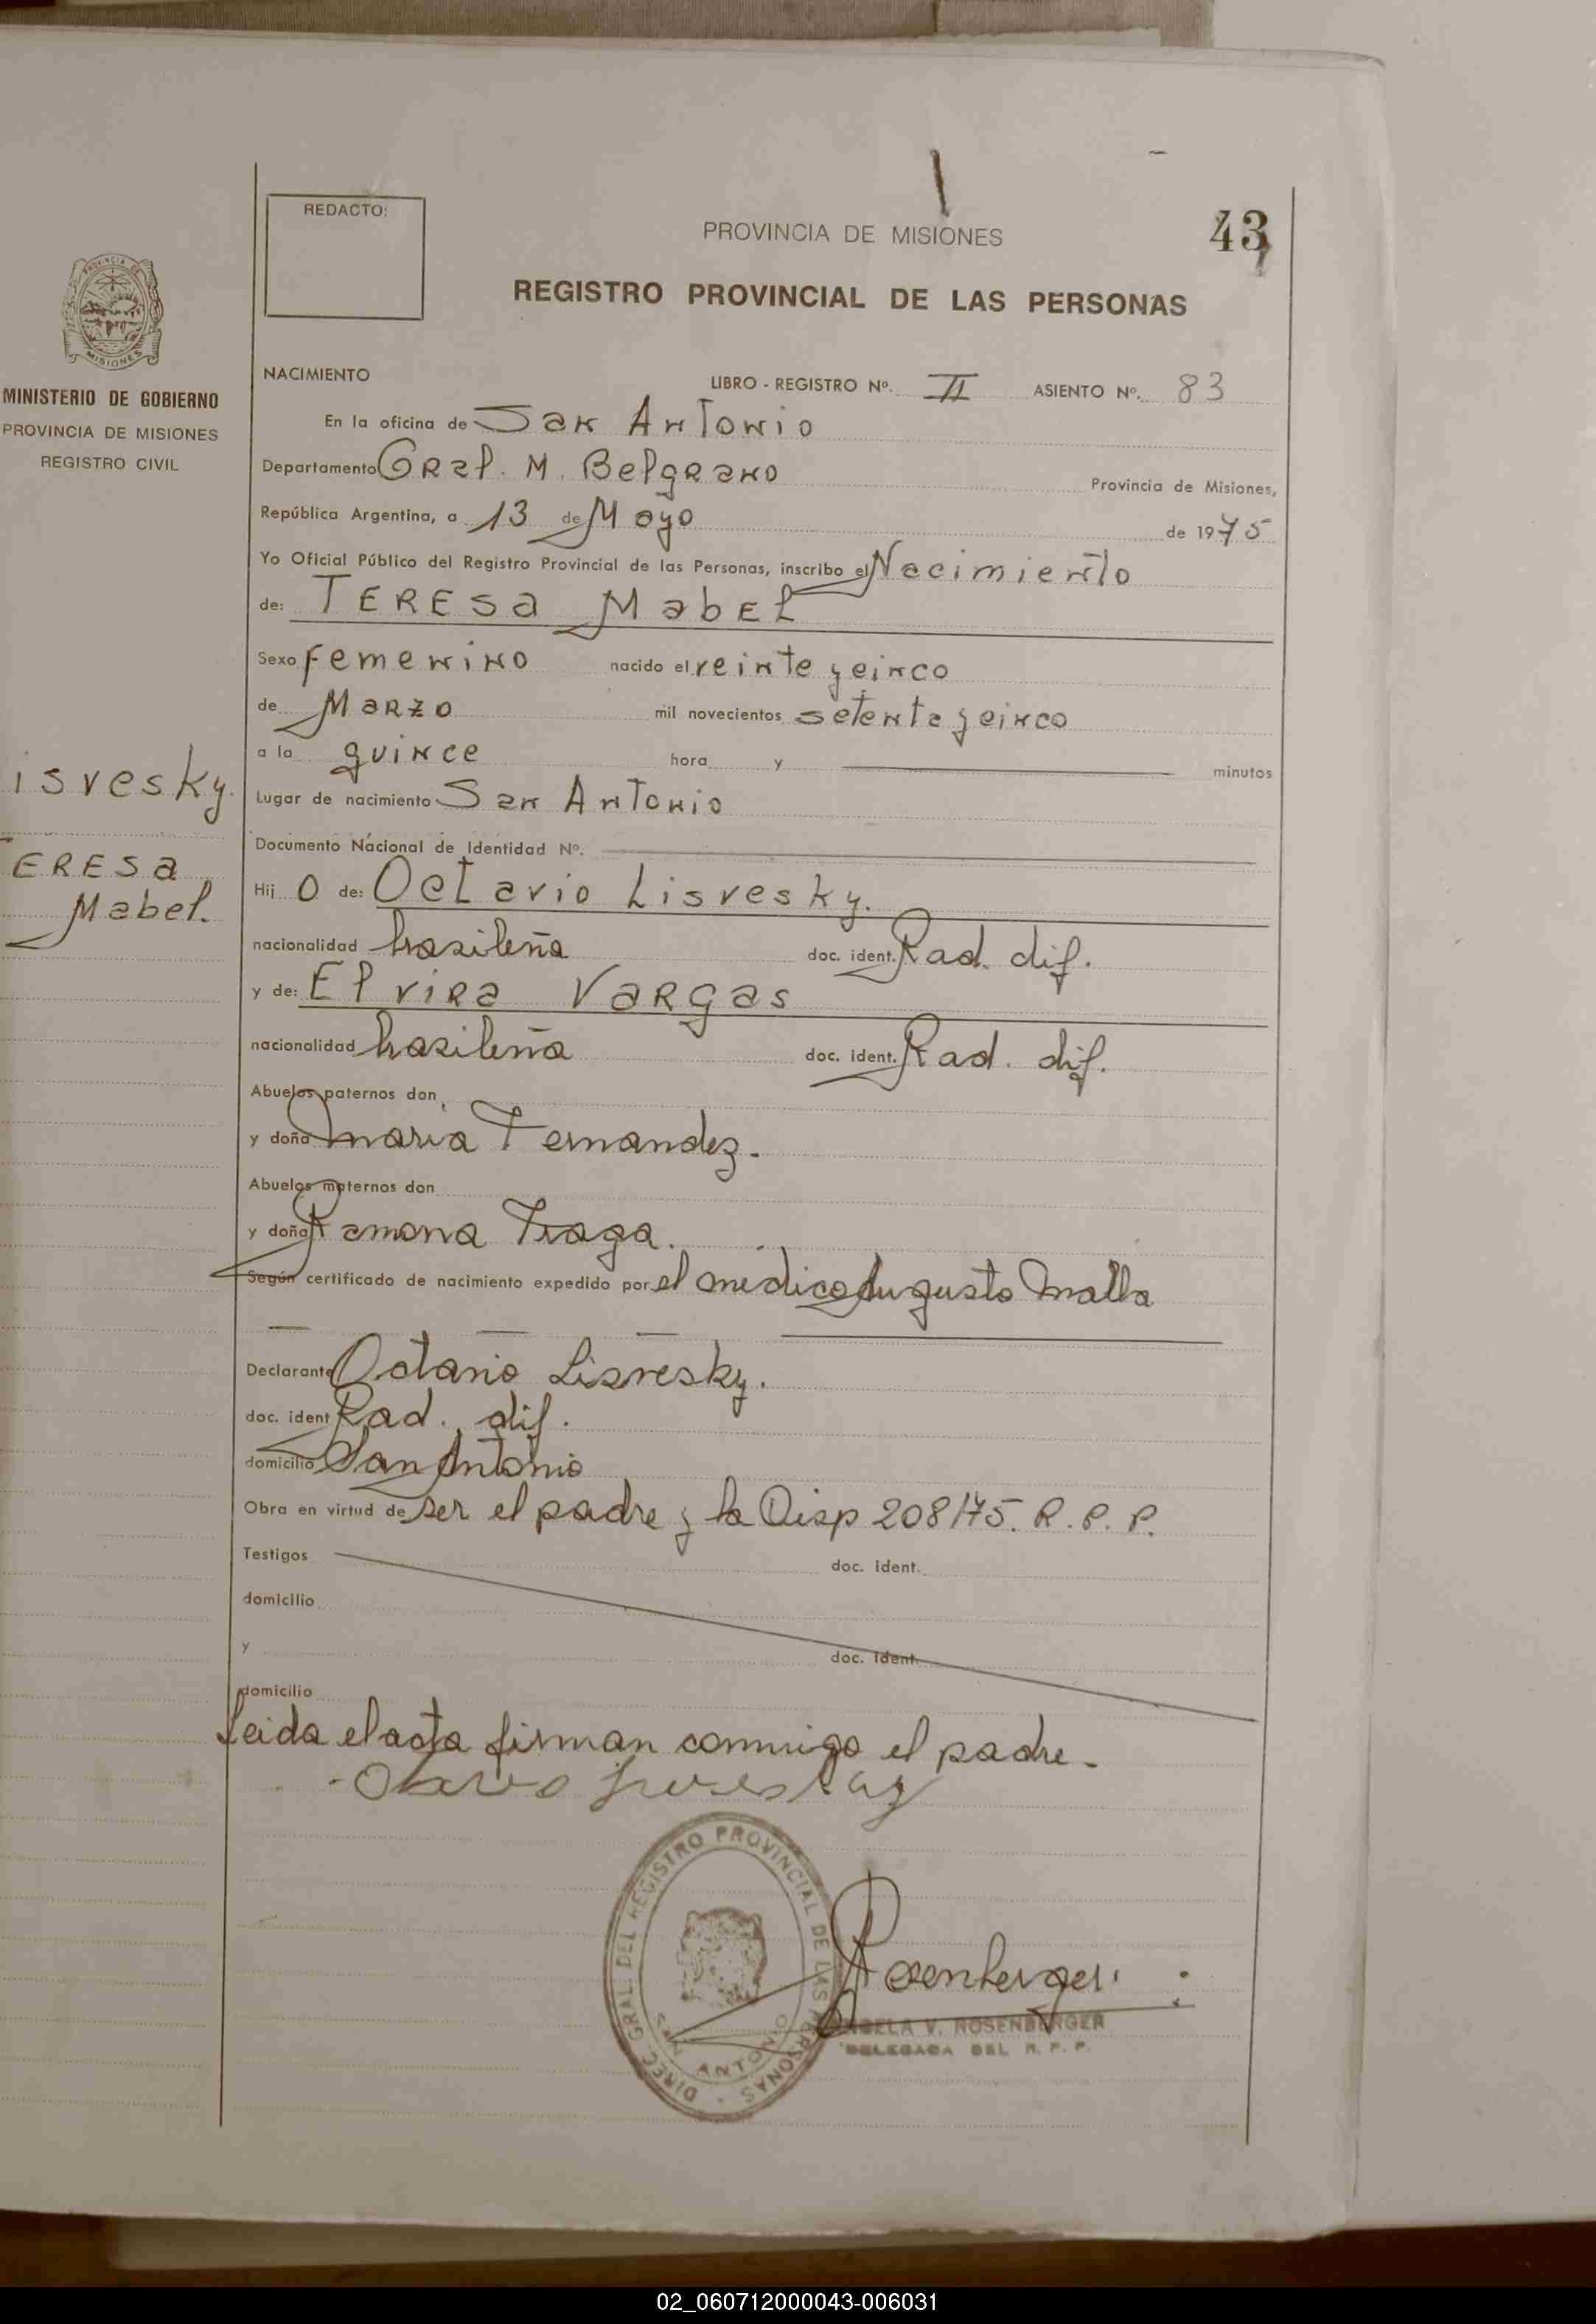 REDACTO:
PROVINCIA DE MISIONES
43
REGISTRO PROVINCIAL DE LAS PERSONAS
PROVINCIA DE
MISIONES
MINISTERIO DE GOBIERNO
PROVINCIA DE MISIONES
REGISTRO CIVIL
isvesky.
TERESA
Mabel.
NACIMIENTO LIBRO - REGISTRO Nº. II ASIENTO Nº. 83
En la oficina de San Antonio
Departamento Gral. M. Belgrano Provincia de Misiones,
República Argentina, a 13 de Mayo de 1975
Yo Oficial Público del Registro Provincial de las Personas, inscribo el Nacimiento
de: TERESA Mabel
Sexo femenino nacido el veinte y cinco
de Marzo mil novecientos setenta y cinco
a la quince hora y minutos
Lugar de nacimiento San Antonio
Documento Nacional de Identidad Nº.
Hij o de: Octavio Lisvesky.
nacionalidad brasileña doc. ident. Rad. dif.
y de: Elvira Vargas
nacionalidad brasileña doc. ident. Rad. dif.
Abuelos paternos don
y doña Maria Fernandez.
Abuelos maternos don
y doña Ramona Fraga.
Según certificado de nacimiento expedido por el médico Augusto Malla
Declarante Octavio Lisvesky.
doc. ident Rad. dif.
domicilio San Antonio
Obra en virtud de ser el padre y la Disp 208/75. R. P. P.
Testigos doc. ident.
domicilio
y doc. ident.
domicilio
Leida el acta firman conmigo el padre.
DIREC. GRAL. DEL REGISTRO PROVINCIAL DE LAS PERSONAS
SAN ANTONIO
Rosenberger
ANGELA V. ROSENBERGER
DELEGADA DEL R. P. P.
02_060712000043-006031